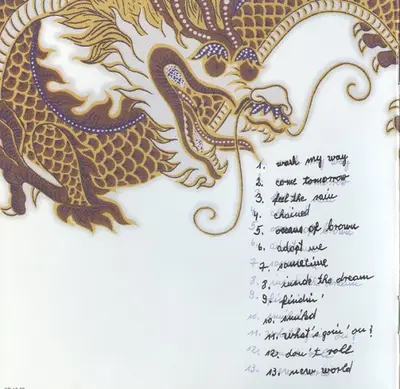 1. work my way
2. come tomorrow
3. feel the rain
4. chained
5. oceans of brown
6. adopt me
7. sometime
8. inside the dream
9. findin'
10.
11. what's goin' on?
12. don't roll
13. new world